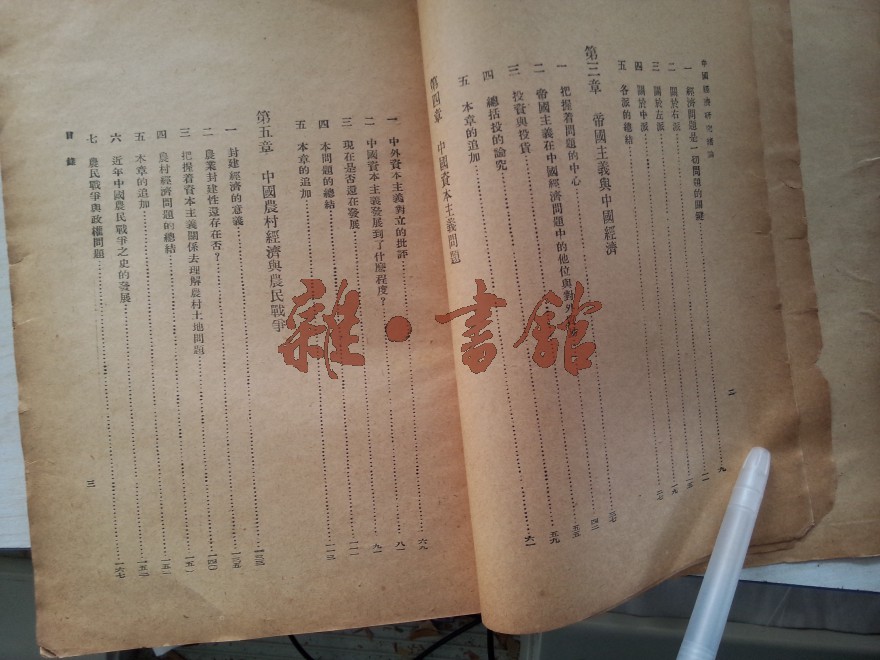 中國經濟研究緒論
一 經濟問題是一切問題的關鍵 九
二 關於右派 一一
三 關於左派 一五
四 關於中派 一九
五 各派的總結 二七
第三章 帝國主義與中國經濟 三七
一 把握着問題的中心
二 帝國主義在中國經濟問題中的他位與對外 四二
三 投資與投貨 五五
四 總括投的論究 五九
五 本章的追加 六一
第四章 中國資本主義問題
二
一 中外資本主義對立的批評 六九
二 中國資本主義發展到了什麼程度? 八一
三 現在是否還在發展 九一
四 本問題的總結 一一一
五 本章的追加 一一三
第五章 中國農村經濟與農民戰爭
一 封建經濟的意義 一三三
二 農業封建性還存在否? 一三五
三 把握着資本主義關係去理解農村土地問題 一四〇
四 農村經濟問題的總結 一五一
五 本章的追加
六 近年中國農民戰爭之史的發展 一五二
七 農民戰爭與政權問題 一六七
目錄
三
雜·書館